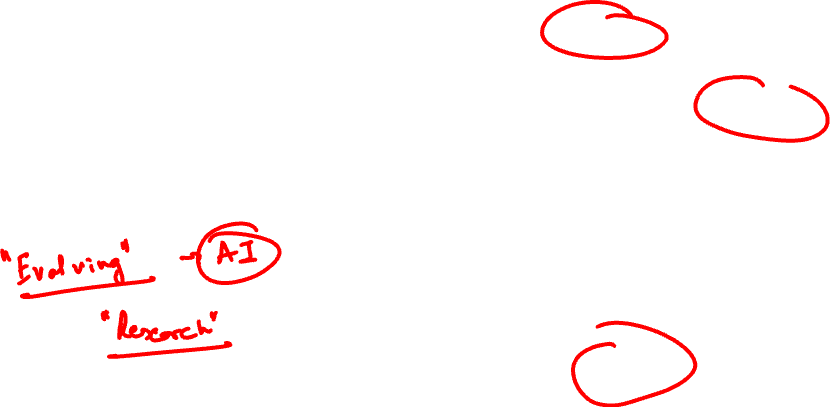 "Evolving" - AI
"Research"